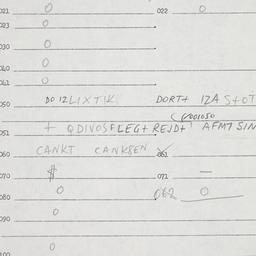 021 0 022 0
023 0
030 0
040 0
041 0
050 DO 12LIXTIK DORT+ 12A S+OT
051 + QDIVOSFLEG+ REJD+ AFM7 SIN
060 CANKT CANKSEN 061
070 $ 071 —
080 0 062 0
090 0
100 0